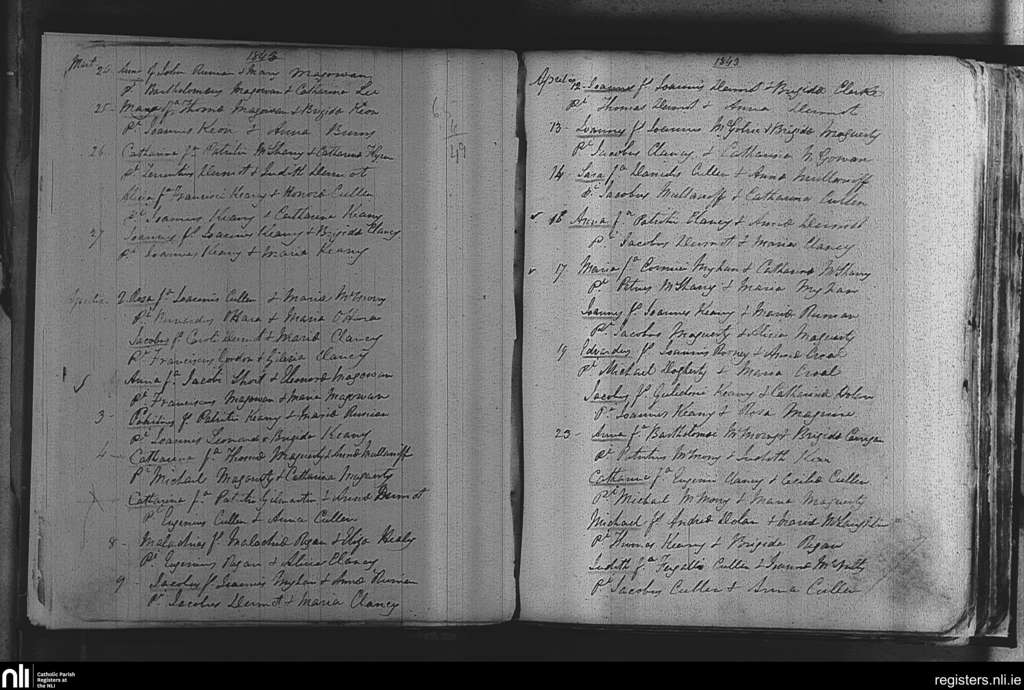 1843
Mart 24. Anna f John Ruinian & Mary Magowan
Pt Bartholomeus Magowan & Catherine Lee
25 - Maria fa Thoma Magowan & Brigida Keon
Pt Joannes Keon & Anna Burns
26. Catharina fa Patritii McSharry & Catharina
Pt Terentius Dermot & Judith Dermot
Alicia fa Francisci Keany & Honora Cullen
Pt Joannes Keany & Catharine Keany
27 Joannes fs Joannis Keany & Brigida Clancy
Pt Joannes Keany & Maria Keany
6
4
49
Aprilis 2. Rosa fa Joannis Cullen & Maria McMorry
Pt Bernardus O'Hara & Maria O'Hara
Jacobus f Caroli Dermot & Maria Clancy
Pt Franciscus Gordon & Maria Clancy
Anna fa Jacobi Short & Elenora Magowan
Pt Franciscus Magowan & Maria Magowan
3 - Patritius f Patritii Keany & Maria Ruinian
Pt Joannes Leonard & Brigida Keany
4 - Catharina fa Thoma Maguerty & Anna Mullaniff
Pt Michael Maguerty & Catharina Maguerty
Catharina fa Patritii Gilmartin & Anna Dermot
Pt Eugenius Cullen & Anna Cullen
8 - Malachias fs Malachia Ragan & Eliza Healy
Pt Eugenius Ragan & Alicia Clancy
9 - Jacobus fs Joannis Myhan & Anna Ruinian
Pt Jacobus Dermot & Maria Clancy
1843
Aprilis 12. Joannes fs Joannis Dermot & Brigida Clarke
Pt Thomas Dermot & Anna Dermot
13 - Joannes fs Joannis McGotrie & Brigida Maguerty
Pt Jacobus Clancy & Catharina McGowan
14 - Sara fa Danielis Cullen & Anna Mullaniff
Pt Jacobus Mullaniff & Catharina Cullen
16 Anna fa Patritii Clancy & Anna Dermot
Pt Jacobus Dermot & Maria Clancy
17. Maria fa Cormici Myhan & Catharina McSharry
Pt Petrus McSharry & Maria Myhan
Joannes fs Joannis Keany & Maria Ruinian
Pt Jacobus Maguerty & Alicia Maguerty
19 Edvardus fs Joannis Rooney & Anna Croal
Pt Michael Dogherty & Maria Croal
Jacobus fs Gulielmi Keany & Catharina Dolan
Pt Joannes Keany & Rosa Maguire
23 - Anna fa Bartholomei McMorry & Brigida Corrigan
Pt Patritius McMorry & Judith Keon
Catharina fa Eugenii Clancy & Cecilia Cullen
Pt Michael McMorry & Maria Maguerty
Michael fs Andrea Dolan & Maria McLaughlin
Pt Thomas Keany & Brigida Ragan
Judith fa Cullen & Joanna McNulty
Pt Jacobus Cullen & Anna Cullen
nli
Catholic Parish
Registers at
the NLI
registers.nli.ie